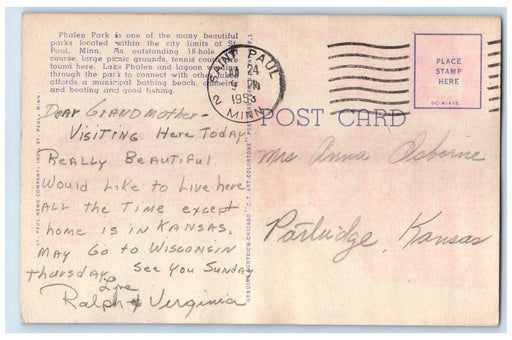 Phalen Park is one of the many beautiful
parks located within the city limits of St.
Paul, Minn. An outstanding 18-hole
course, large picnic grounds, tennis
found here. Lake Phalen and lagoon
through the park to connect with other
affords a municipal bathing beach,
and boating and good fishing.
SAINT PAUL
24
PM
1953
2 MINN.
PLACE
STAMP
HERE
OC-H1415
POST CARD
Dear Grandmother-
Visiting Here Today
Really Beautiful
Would Like to Live here
All the Time except
home is in Kansas.
May Go to Wisconsin
Thursday. See You Sunday
Love
Ralph & Virginia
Mrs Anna Osborne
Partridge, Kansas
ST. PAUL NEWS COMPANY, INC., ST. PAUL, MINN.
GENUINE CURTEICH-CHICAGO "C.T. ART-COLORTONE" POST